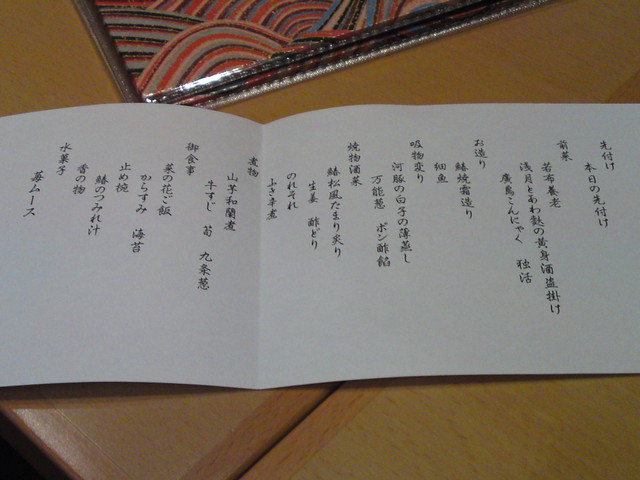 先付け
本日の先付け
前菜
若布養老
浅月とあわ麩の黄身酒盗掛け
廣島こんにゃく 独活
お造り
鰆焼霜造り
細魚
吸物変り
河豚の白子の薄蒸し
万能葱 ポン酢餡
焼物酒菜
鰆松風たまり炙り
生姜 酢どり
のれそれ
ふき辛煮
煮物
山芋和蘭煮
牛すじ 筍 九条葱
御食事
菜の花ご飯
からすみ 海苔
止め椀
鰆のつみれ汁
香の物
水菓子
苺ムース